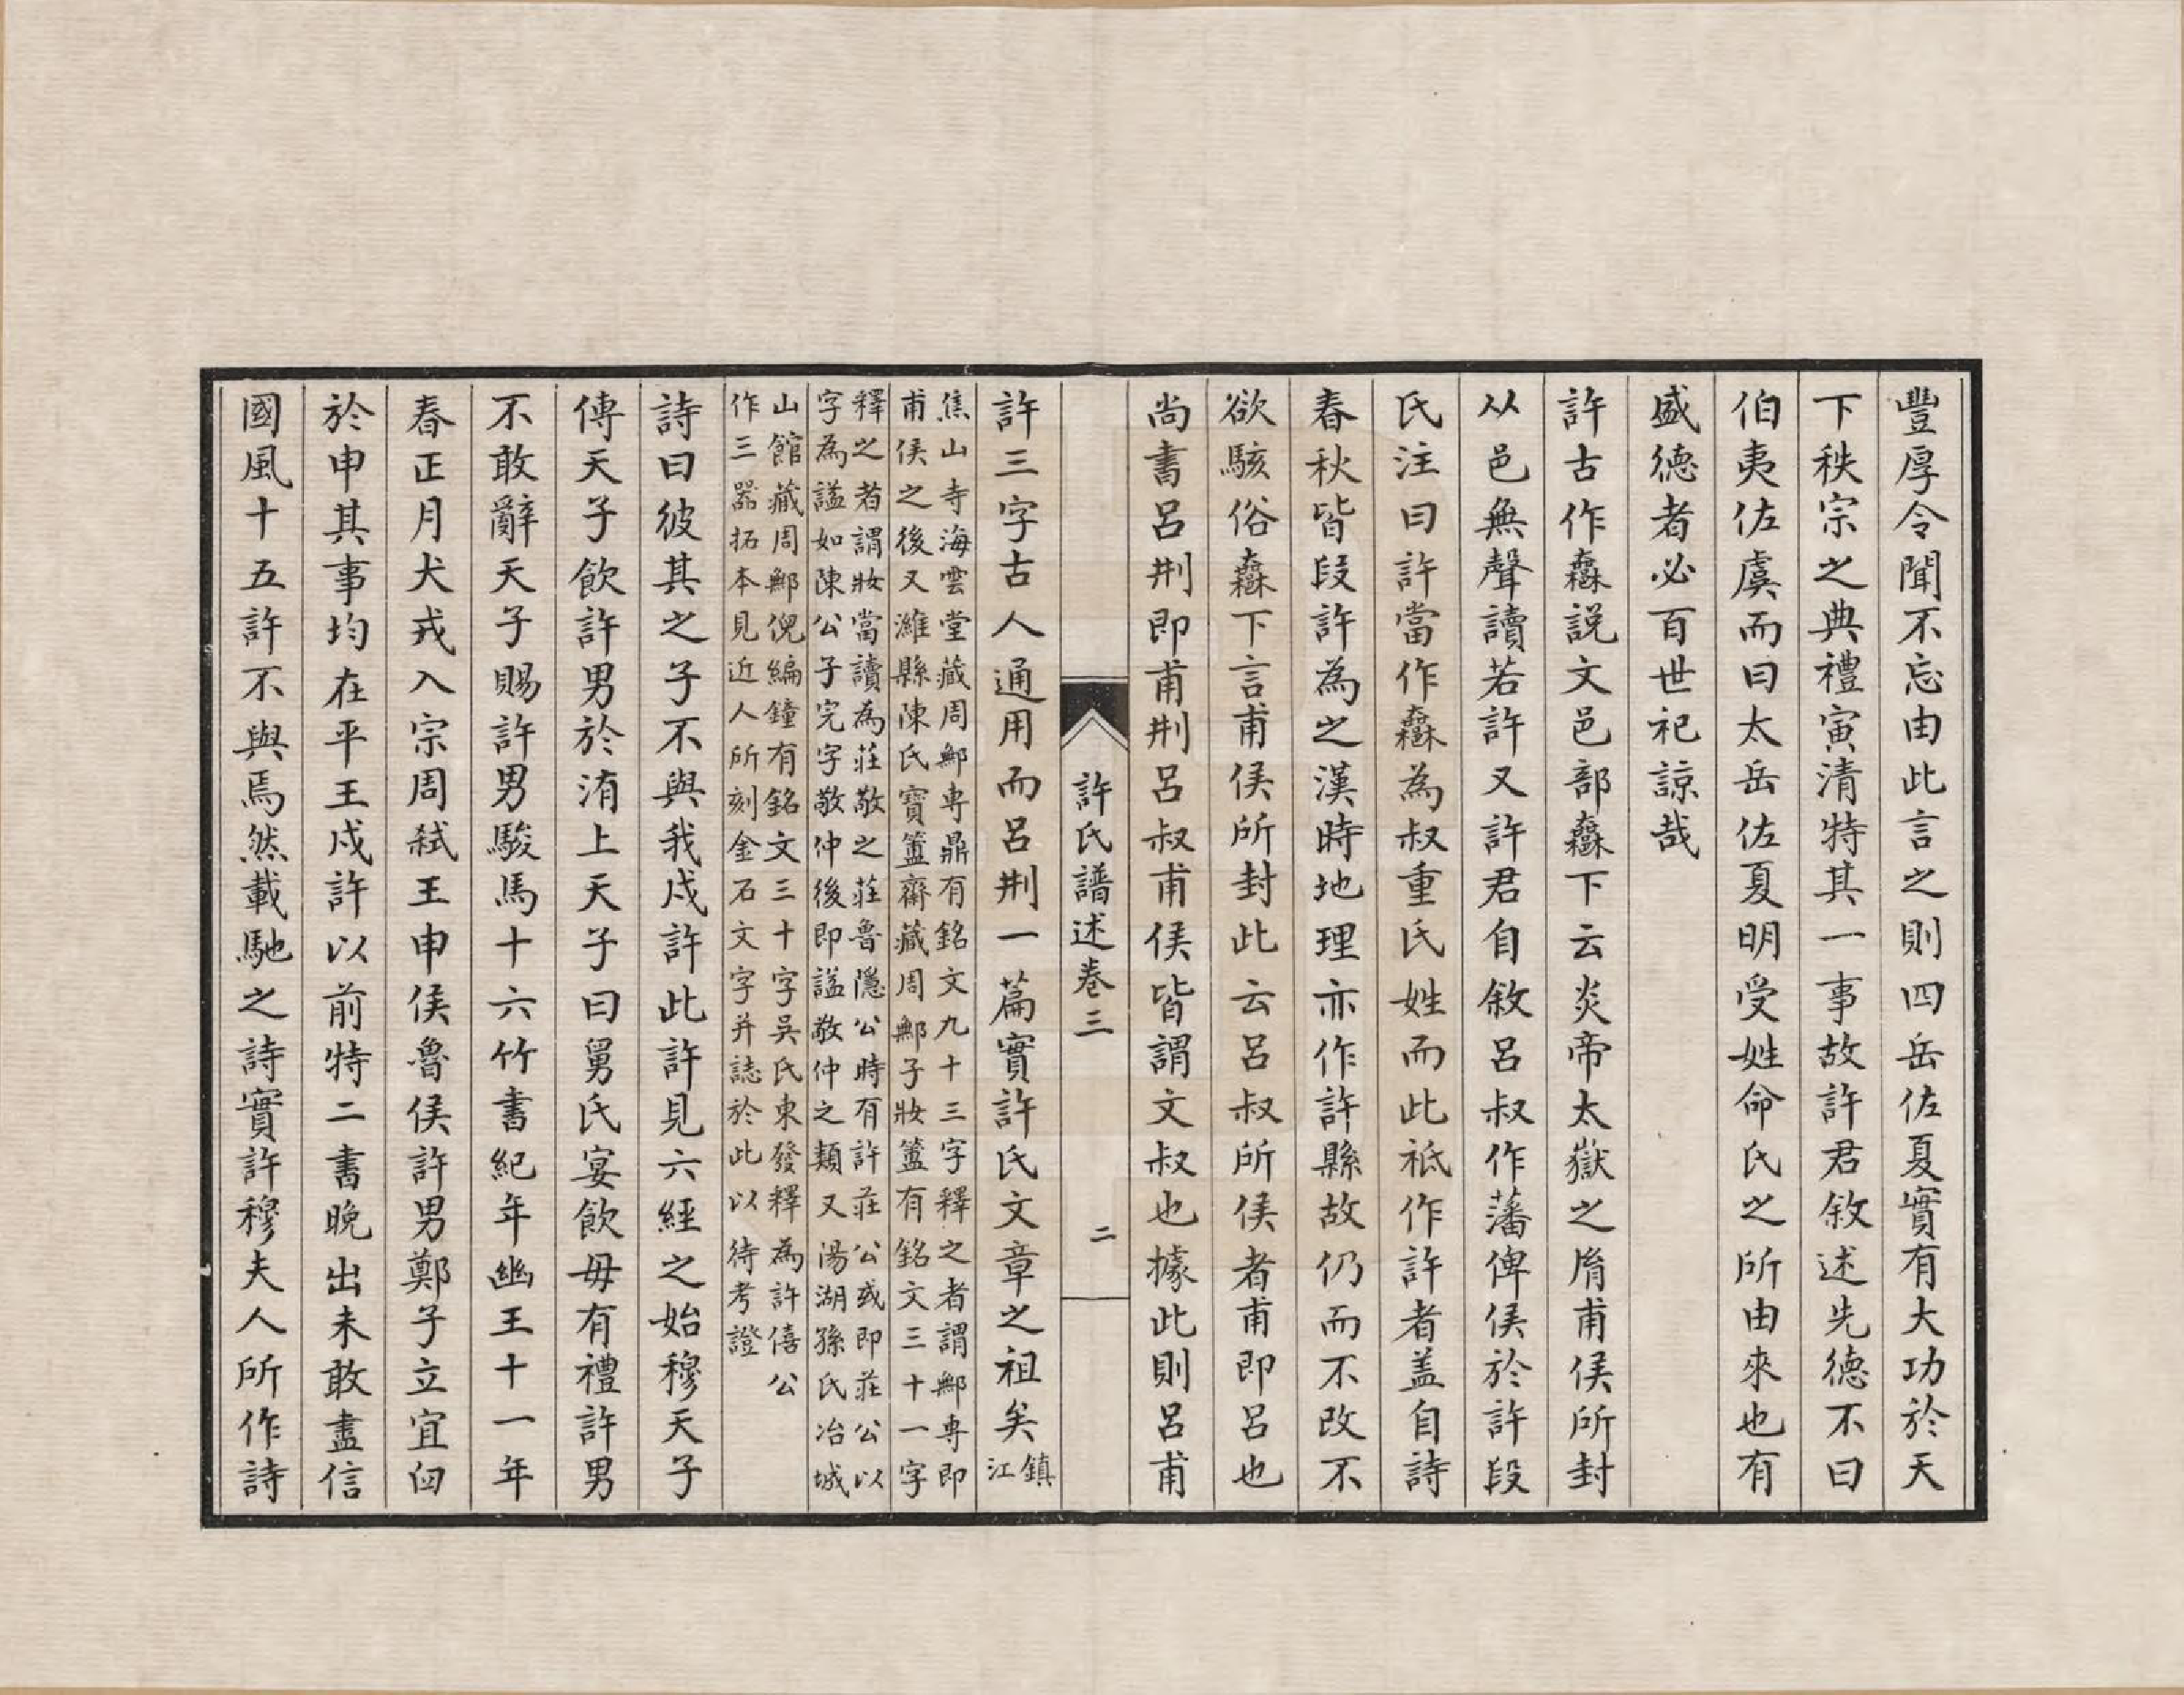 豐厚令聞不忘由此言之則四岳佐夏實有大功於天
下秩宗之典禮寅清特其一事故許君敘述先德不曰
伯夷佐虞而曰太岳佐夏明受姓命氏之所由來也有
盛德者必百世祀諒哉
許古作鄦說文邑部鄦下云炎帝太嶽之胤甫侯所封
从邑無聲讀若許又許君自敘呂叔作藩俾侯於許段
氏注曰許當作鄦為叔重氏姓而此祗作許者盖自詩
春秋皆段許為之漢時地理亦作許縣故仍而不改不
欲駭俗鄦下言甫侯所封此云呂叔所侯者甫即呂也
尚書呂荆即甫荆呂叔甫侯皆謂文叔也據此則呂甫
許氏譜述卷三
二
許三字古人通用而呂荆一篇實許氏文章之祖矣鎮江
焦山寺海雲堂藏周鄦專鼎有銘文九十三字釋之者謂鄦專即
甫侯之後又濰縣陳氏寶簠齋藏周鄦子妝簠有銘文三十一字
釋之者謂妝當讀為莊敬之莊魯隱公時有許莊公或即莊公以
字為諡如陳公子完字敬仲後即諡敬仲之類又湯湖孫氏冶城
山館藏周鄦倪編鐘有銘文三十字吳氏東發釋為許僖公
作三器拓本見近人所刻金石文字并誌於此以待考證
詩曰彼其之子不與我戍許此許見六經之始穆天子
傳天子飲許男於洧上天子曰舅氏宴飲毋有禮許男
不敢辭天子賜許男駿馬十六竹書紀年幽王十一年
春正月犬戎入宗周弒王申侯魯侯許男鄭子立宜臼
於申其事均在平王戍許以前特二書晚出未敢盡信
國風十五許不與焉然載馳之詩實許穆夫人所作詩